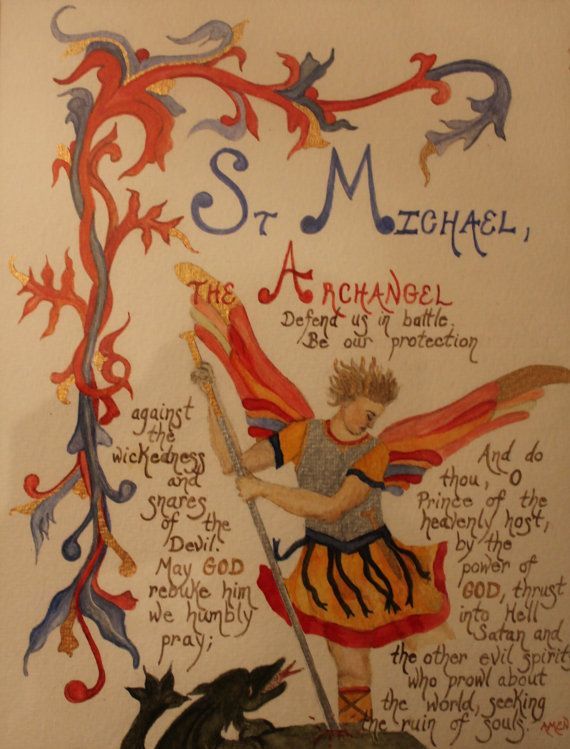 St Michael,
the Archangel
Defend us in battle.
Be our protection
against
the
wickedness
and
snares
of the
Devil.
May GOD
rebuke him
we humbly
pray;
And do
thou, O
Prince of the
heavenly host,
by the
power of
GOD, thrust
into Hell
Satan and
the other evil spirits
who prowl about
the world, seeking
the ruin of souls.
AMEN